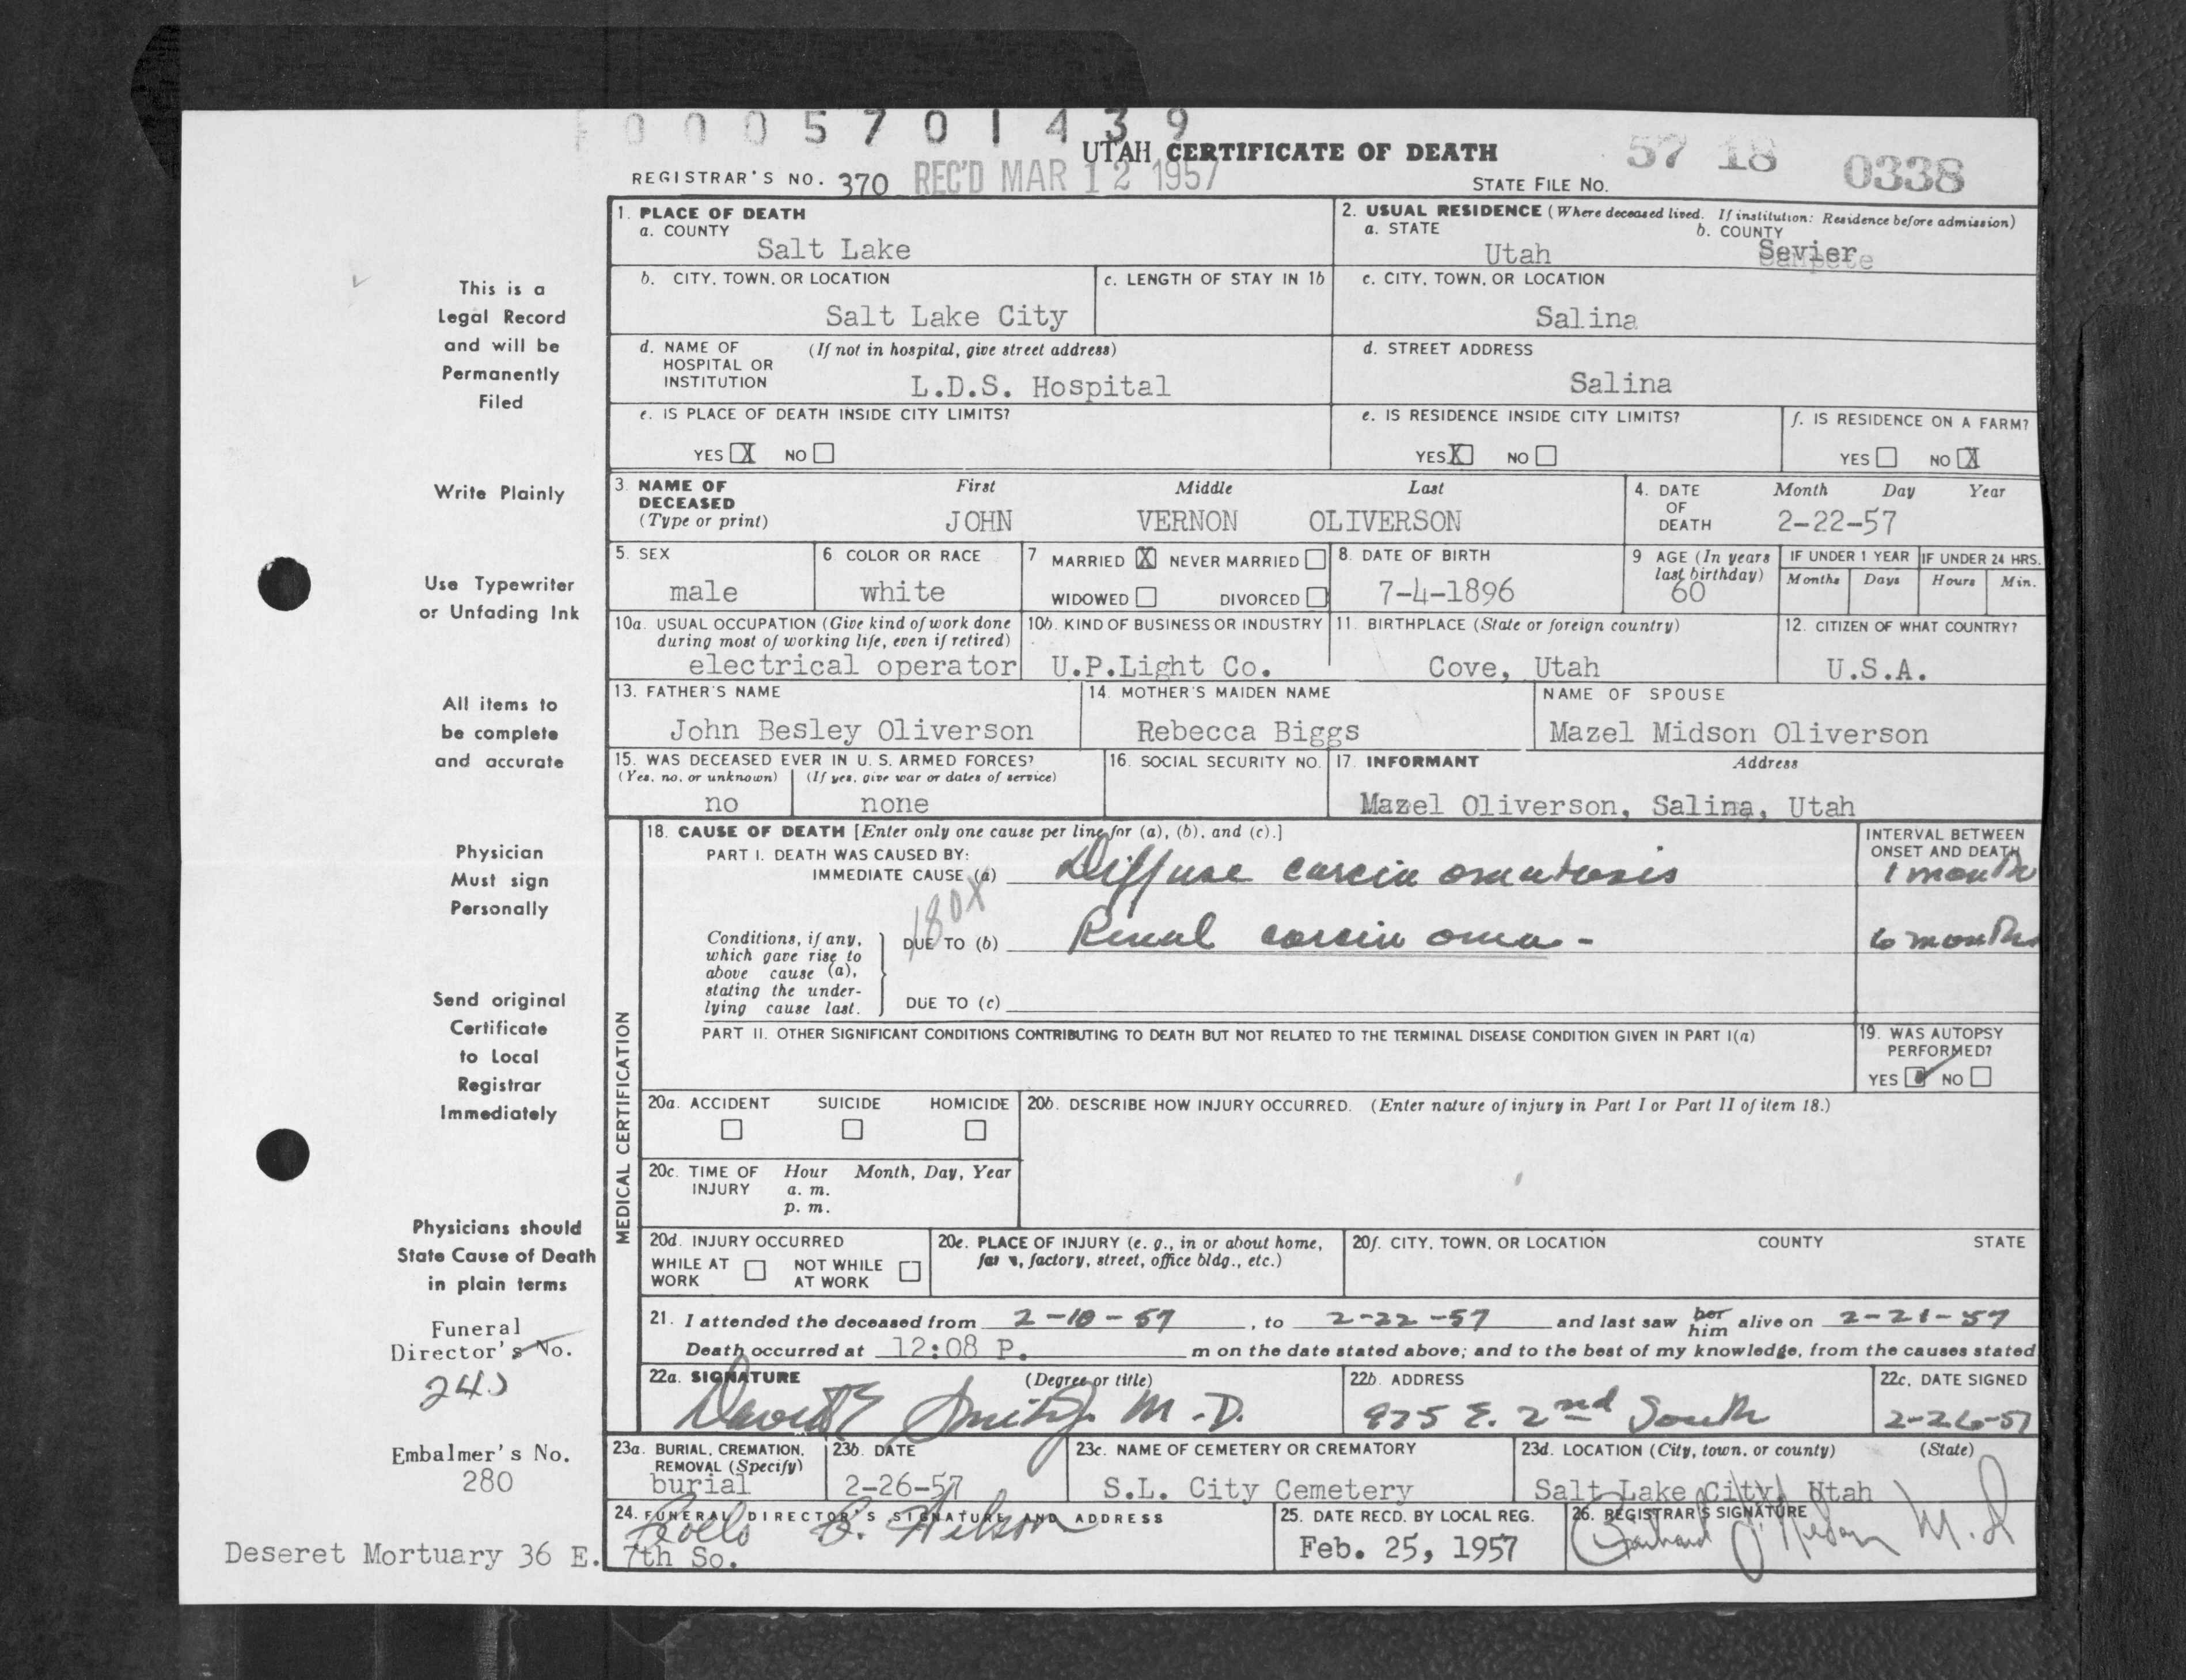 0 0 0 5 7 0 1 4 3 9
UTAH CERTIFICATE OF DEATH
57 18 0338
REGISTRAR'S NO. 370 REC'D MAR 12 1957 STATE FILE NO.
1. PLACE OF DEATH
a. COUNTY
Salt Lake
2. USUAL RESIDENCE (Where deceased lived. If institution: Residence before admission)
a. STATE b. COUNTY
Utah Sevier
b. CITY, TOWN, OR LOCATION
Salt Lake City
c. LENGTH OF STAY IN 1b
c. CITY, TOWN, OR LOCATION
Salina
d. NAME OF HOSPITAL OR INSTITUTION (If not in hospital, give street address)
L.D.S. Hospital
d. STREET ADDRESS
Salina
e. IS PLACE OF DEATH INSIDE CITY LIMITS?
YES X NO
e. IS RESIDENCE INSIDE CITY LIMITS?
YES X NO
f. IS RESIDENCE ON A FARM?
YES NO X
3. NAME OF DECEASED (Type or print)
First Middle Last
JOHN VERNON OLIVERSON
4. DATE OF DEATH Month Day Year
2-22-57
5. SEX
male
6 COLOR OR RACE
white
7 MARRIED X NEVER MARRIED
WIDOWED DIVORCED
8. DATE OF BIRTH
7-4-1896
9 AGE (In years last birthday)
60
IF UNDER 1 YEAR IF UNDER 24 HRS.
Months Days Hours Min.
10a. USUAL OCCUPATION (Give kind of work done during most of working life, even if retired)
electrical operator
10b. KIND OF BUSINESS OR INDUSTRY
U.P.Light Co.
11. BIRTHPLACE (State or foreign country)
Cove, Utah
12. CITIZEN OF WHAT COUNTRY?
U.S.A.
13. FATHER'S NAME
John Besley Oliverson
14. MOTHER'S MAIDEN NAME
Rebecca Biggs
NAME OF SPOUSE
Mazel Midson Oliverson
15. WAS DECEASED EVER IN U. S. ARMED FORCES?
(Yes, no, or unknown) (If yes, give war or dates of service)
no none
16. SOCIAL SECURITY NO.
17. INFORMANT Address
Mazel Oliverson, Salina, Utah
MEDICAL CERTIFICATION
18. CAUSE OF DEATH [Enter only one cause per line for (a), (b), and (c).]
PART I. DEATH WAS CAUSED BY:
IMMEDIATE CAUSE (a) Diffuse carcinomatosis
INTERVAL BETWEEN ONSET AND DEATH
1 month
180X
Conditions, if any, which gave rise to above cause (a), stating the underlying cause last.
DUE TO (b) Renal carcinoma -
6 months
DUE TO (c)
PART II. OTHER SIGNIFICANT CONDITIONS CONTRIBUTING TO DEATH BUT NOT RELATED TO THE TERMINAL DISEASE CONDITION GIVEN IN PART I(a)
19. WAS AUTOPSY PERFORMED?
YES NO
20a. ACCIDENT SUICIDE HOMICIDE
20b. DESCRIBE HOW INJURY OCCURRED. (Enter nature of injury in Part I or Part II of item 18.)
20c. TIME OF INJURY Hour Month, Day, Year
a. m.
p. m.
20d. INJURY OCCURRED
WHILE AT WORK NOT WHILE AT WORK
20e. PLACE OF INJURY (e. g., in or about home, farm, factory, street, office bldg., etc.)
20f. CITY, TOWN, OR LOCATION COUNTY STATE
21. I attended the deceased from 2-10-57, to 2-22-57 and last saw her him alive on 2-21-57
Death occurred at 12:08 P. m on the date stated above; and to the best of my knowledge, from the causes stated
22a. SIGNATURE (Degree or title)
David E Smith Jr. M.D.
22b. ADDRESS
875 E. 2nd South
22c. DATE SIGNED
2-26-57
23a. BURIAL, CREMATION, REMOVAL (Specify)
burial
23b. DATE
2-26-57
23c. NAME OF CEMETERY OR CREMATORY
S.L. City Cemetery
23d. LOCATION (City, town, or county) (State)
Salt Lake City, Utah
24. FUNERAL DIRECTOR'S SIGNATURE AND ADDRESS
Deseret Mortuary 36 E. 7th So.
25. DATE RECD. BY LOCAL REG.
Feb. 25, 1957
26. REGISTRAR'S SIGNATURE
M.D
This is a
Legal Record
and will be
Permanently
Filed
Write Plainly
Use Typewriter
or Unfading Ink
All items to
be complete
and accurate
Physician
Must sign
Personally
Send original
Certificate
to Local
Registrar
Immediately
Physicians should
State Cause of Death
in plain terms
Funeral
Director's No.
Embalmer's No.
280